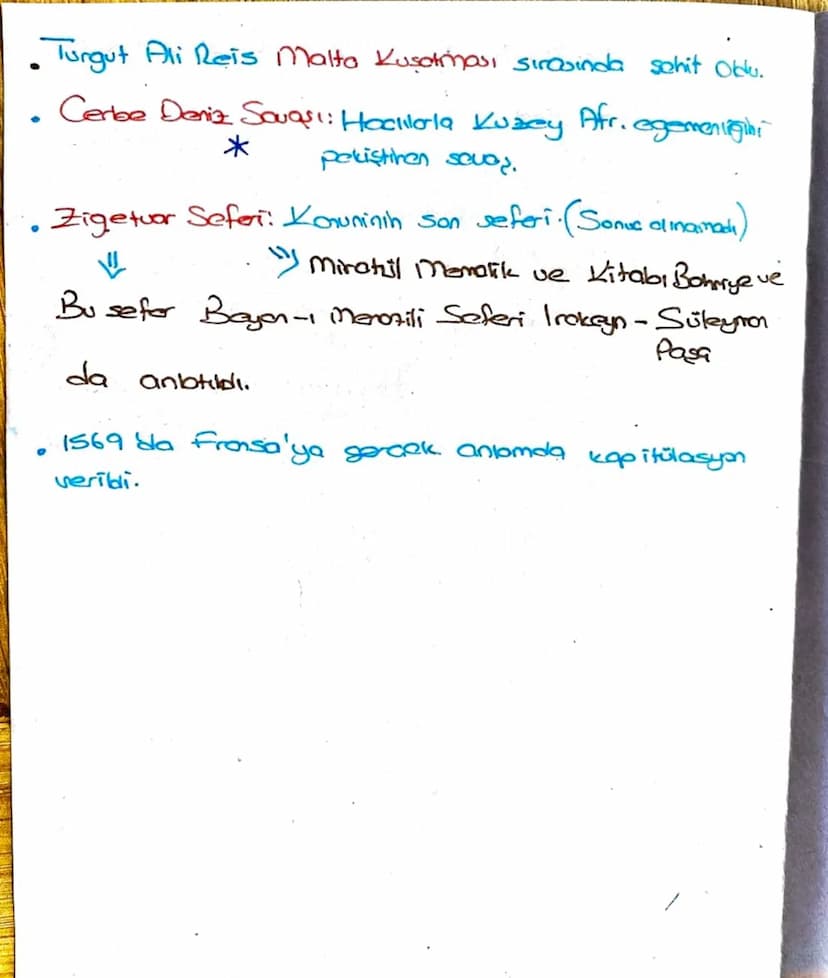 . Turgut Ali Reis Malta Kuşatması sırasında şehit oldu.
. Cerbe Deniz Savaşı: Haçlılarla Kuzey Afr. egemenliğini
* pekiştiren savaş.
. Zigetvar Seferi: Kanuninin son seferi. (Sonuç alınamadı)
⇓ Miratül Memalik ve Kitabı Bahriye ve
Bu sefer Beyan-ı Menazili Seferi Irakeyn - Süleyman
Paşa
da anlatıldı.
. 1569'da Fransa'ya gerçek anlamda kapitülasyon
verildi.